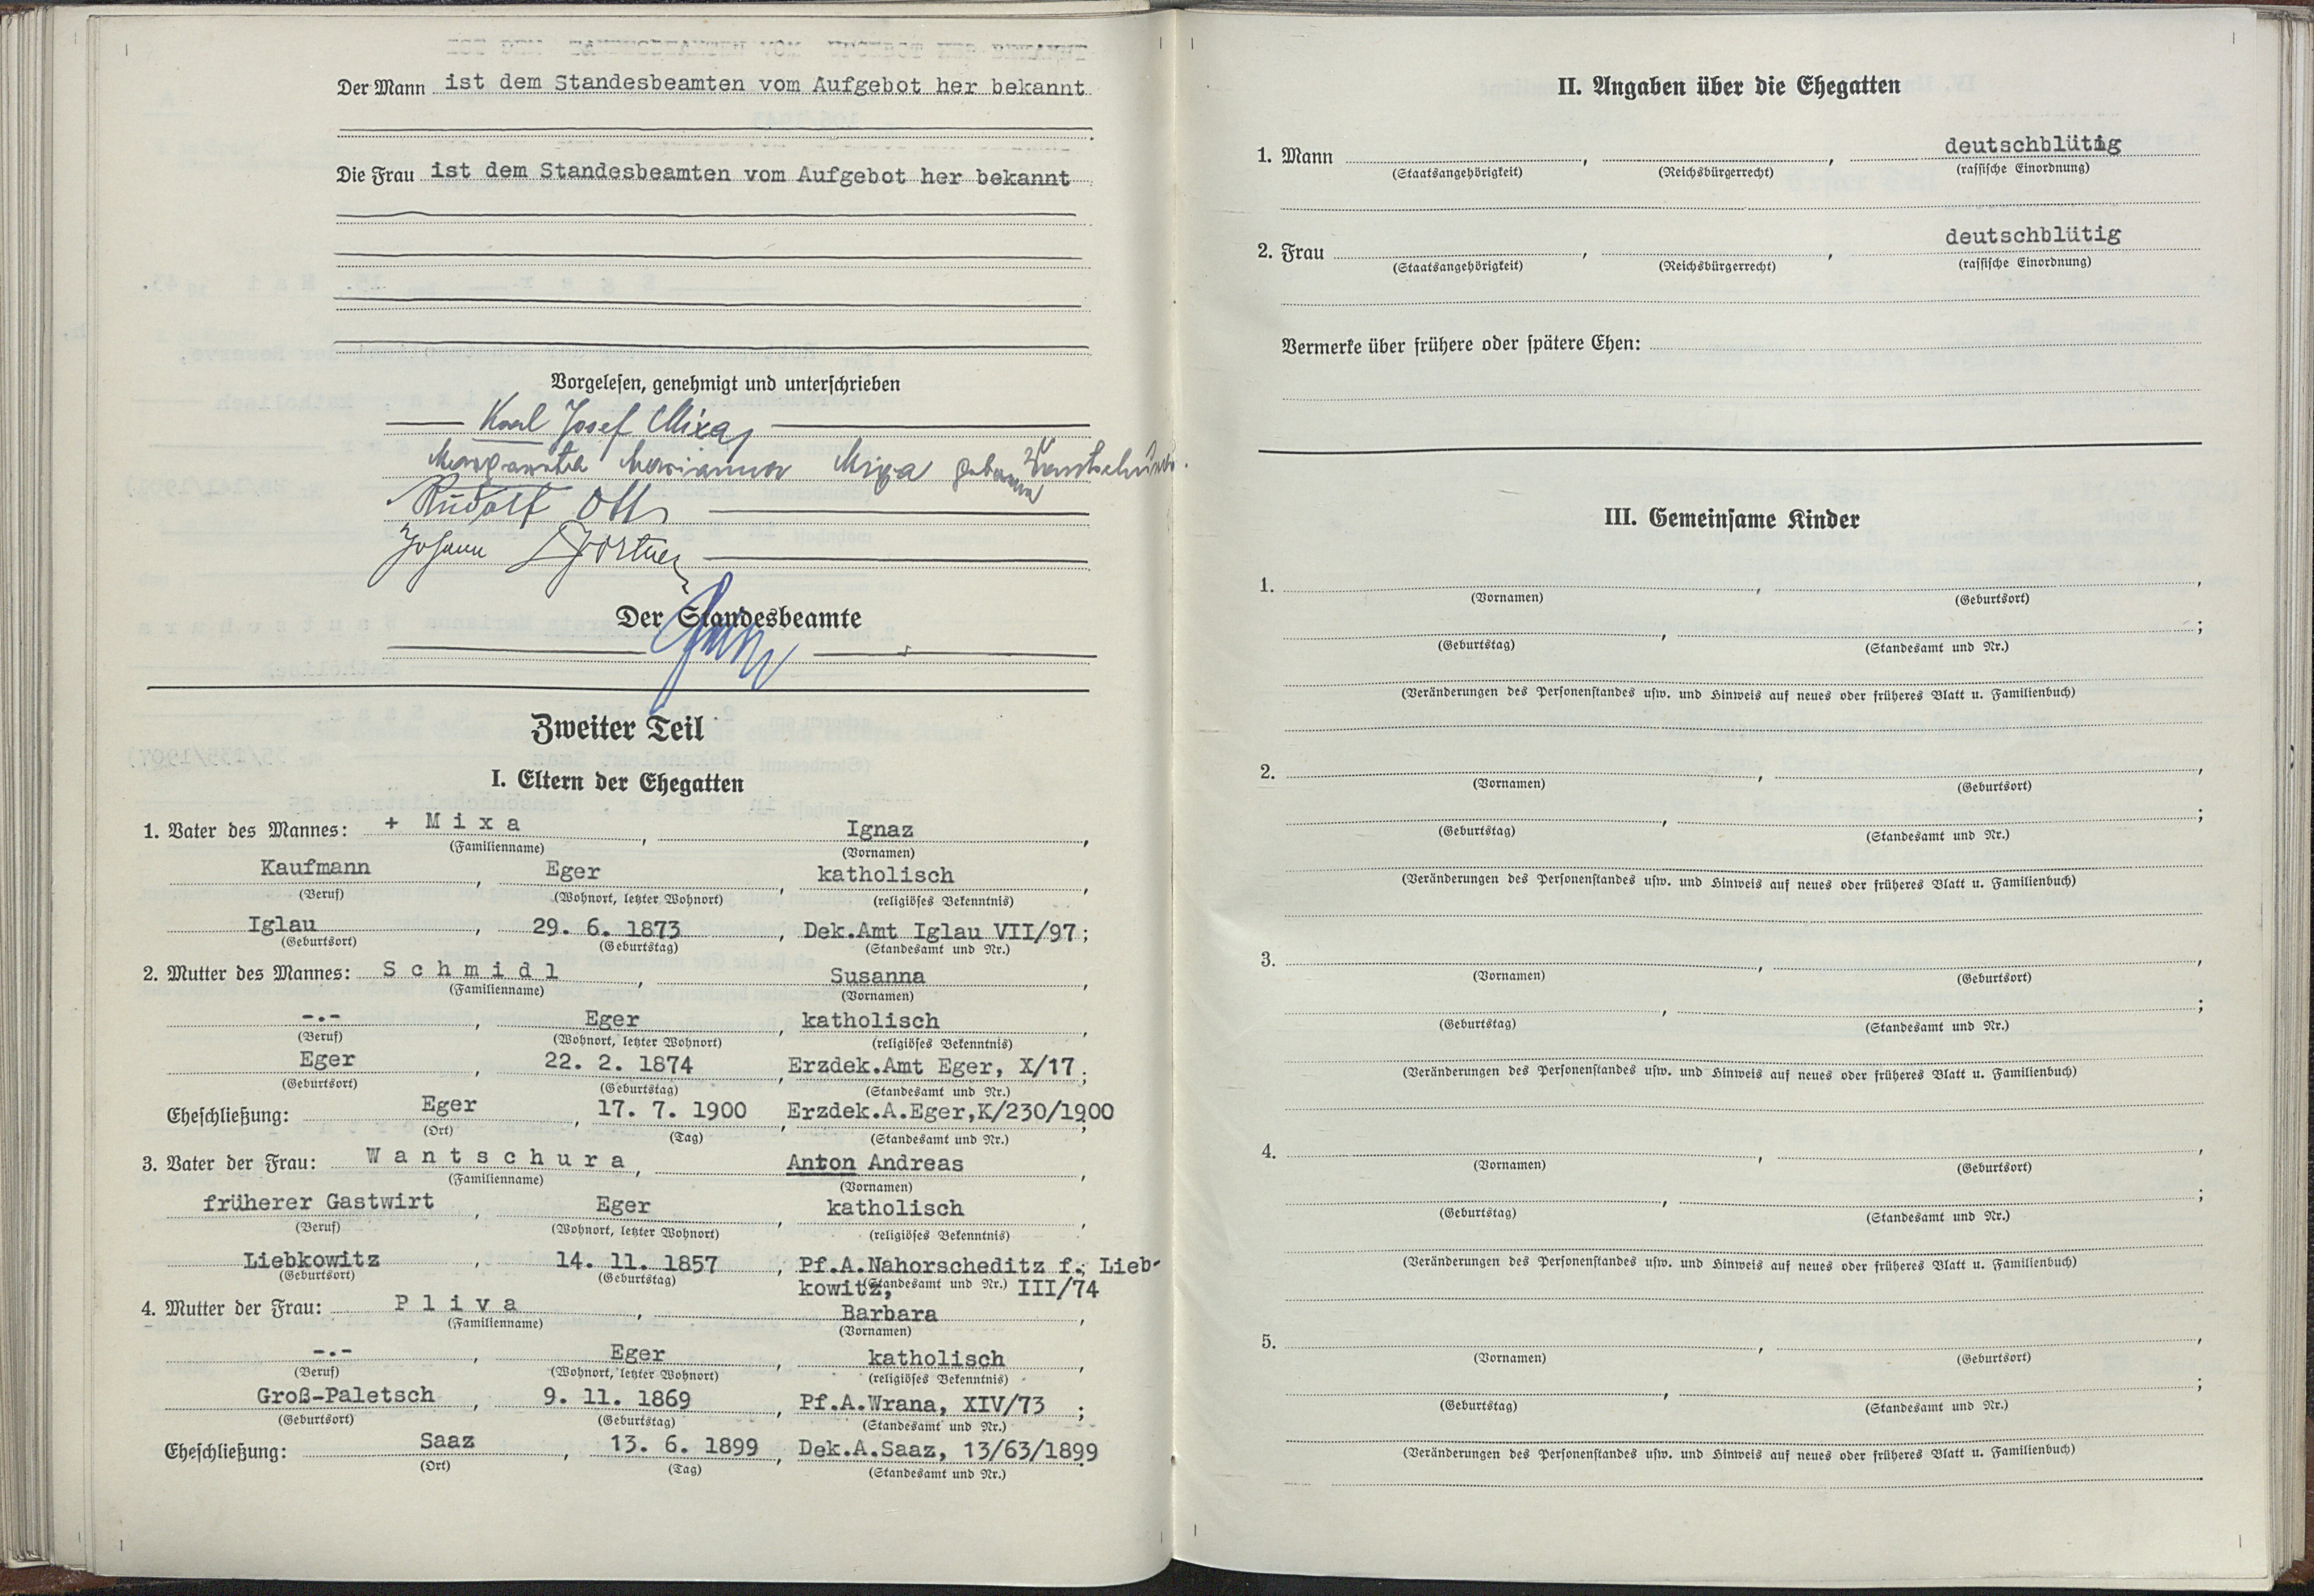 Der Mann ist dem Standesbeamten vom Aufgebot her bekannt
Die Frau ist dem Standesbeamten vom Aufgebot her bekannt
Vorgelesen, genehmigt und unterschrieben
Karl Josef Mixa
Margareta Marianna Mixa geborene Wantschura.
Rudolf Ott
Johann
Der Standesbeamte
Zweiter Teil
I. Eltern der Ehegatten
1. Vater des Mannes: + Mixa, Ignaz,
(Familienname) (Vornamen)
Kaufmann, Eger, katholisch,
(Beruf) (Wohnort, letzter Wohnort) (religiöses Bekenntnis)
Iglau, 29. 6. 1873, Dek.Amt Iglau VII/97;
(Geburtsort) (Geburtstag) (Standesamt und Nr.)
2. Mutter des Mannes: Schmidl, Susanna,
(Familienname) (Vornamen)
-.-, Eger, katholisch,
(Beruf) (Wohnort, letzter Wohnort) (religiöses Bekenntnis)
Eger, 22. 2. 1874, Erzdek.Amt Eger, X/17;
(Geburtsort) (Geburtstag) (Standesamt und Nr.)
Eheschließung: Eger, 17. 7. 1900, Erzdek.A.Eger,K/230/1900;
(Ort) (Tag) (Standesamt und Nr.)
3. Vater der Frau: Wantschura, Anton Andreas,
(Familienname) (Vornamen)
früherer Gastwirt, Eger, katholisch,
(Beruf) (Wohnort, letzter Wohnort) (religiöses Bekenntnis)
Liebkowitz, 14. 11. 1857, Pf.A.Nahorscheditz f.; Lieb-
(Geburtsort) (Geburtstag) kowitz, (Standesamt und Nr.) III/74
4. Mutter der Frau: Pliva, Barbara,
(Familienname) (Vornamen)
-.-, Eger, katholisch,
(Beruf) (Wohnort, letzter Wohnort) (religiöses Bekenntnis)
Groß-Paletsch, 9. 11. 1869, Pf.A.Wrana, XIV/73;
(Geburtsort) (Geburtstag) (Standesamt und Nr.)
Eheschließung: Saaz, 13. 6. 1899, Dek.A.Saaz, 13/63/1899.
(Ort) (Tag) (Standesamt und Nr.)
II. Angaben über die Ehegatten
1. Mann , , deutschblütig
(Staatsangehörigkeit) (Reichsbürgerrecht) (rassische Einordnung)
2. Frau , , deutschblütig
(Staatsangehörigkeit) (Reichsbürgerrecht) (rassische Einordnung)
Vermerke über frühere oder spätere Ehen:
III. Gemeinsame Kinder
1. , ,
(Vornamen) (Geburtsort)
, ;
(Geburtstag) (Standesamt und Nr.)
(Veränderungen des Personenstandes usw. und Hinweis auf neues oder früheres Blatt u. Familienbuch)
2. , ,
(Vornamen) (Geburtsort)
, ;
(Geburtstag) (Standesamt und Nr.)
(Veränderungen des Personenstandes usw. und Hinweis auf neues oder früheres Blatt u. Familienbuch)
3. , ,
(Vornamen) (Geburtsort)
, ;
(Geburtstag) (Standesamt und Nr.)
(Veränderungen des Personenstandes usw. und Hinweis auf neues oder früheres Blatt u. Familienbuch)
4. , ,
(Vornamen) (Geburtsort)
, ;
(Geburtstag) (Standesamt und Nr.)
(Veränderungen des Personenstandes usw. und Hinweis auf neues oder früheres Blatt u. Familienbuch)
5. , ,
(Vornamen) (Geburtsort)
, ;
(Geburtstag) (Standesamt und Nr.)
(Veränderungen des Personenstandes usw. und Hinweis auf neues oder früheres Blatt u. Familienbuch)